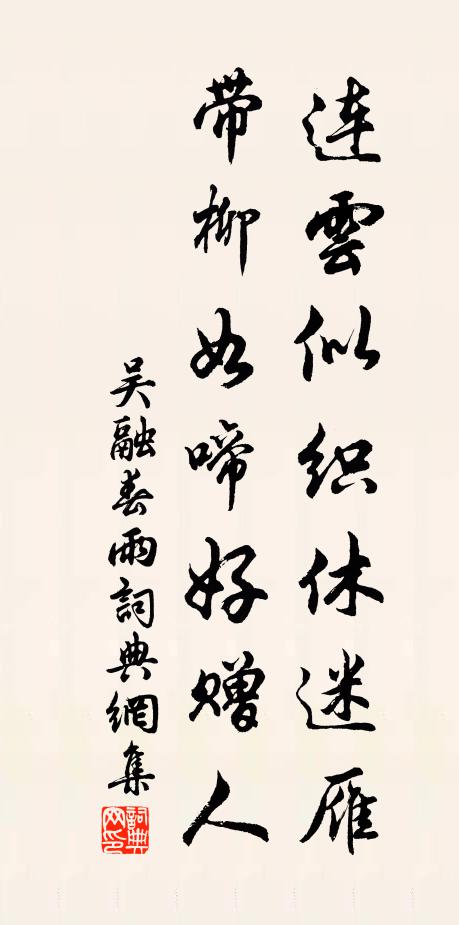 連雲似织休迷雁
带柳如啼好赠人
吴融春雨詞典網集
詞典网印